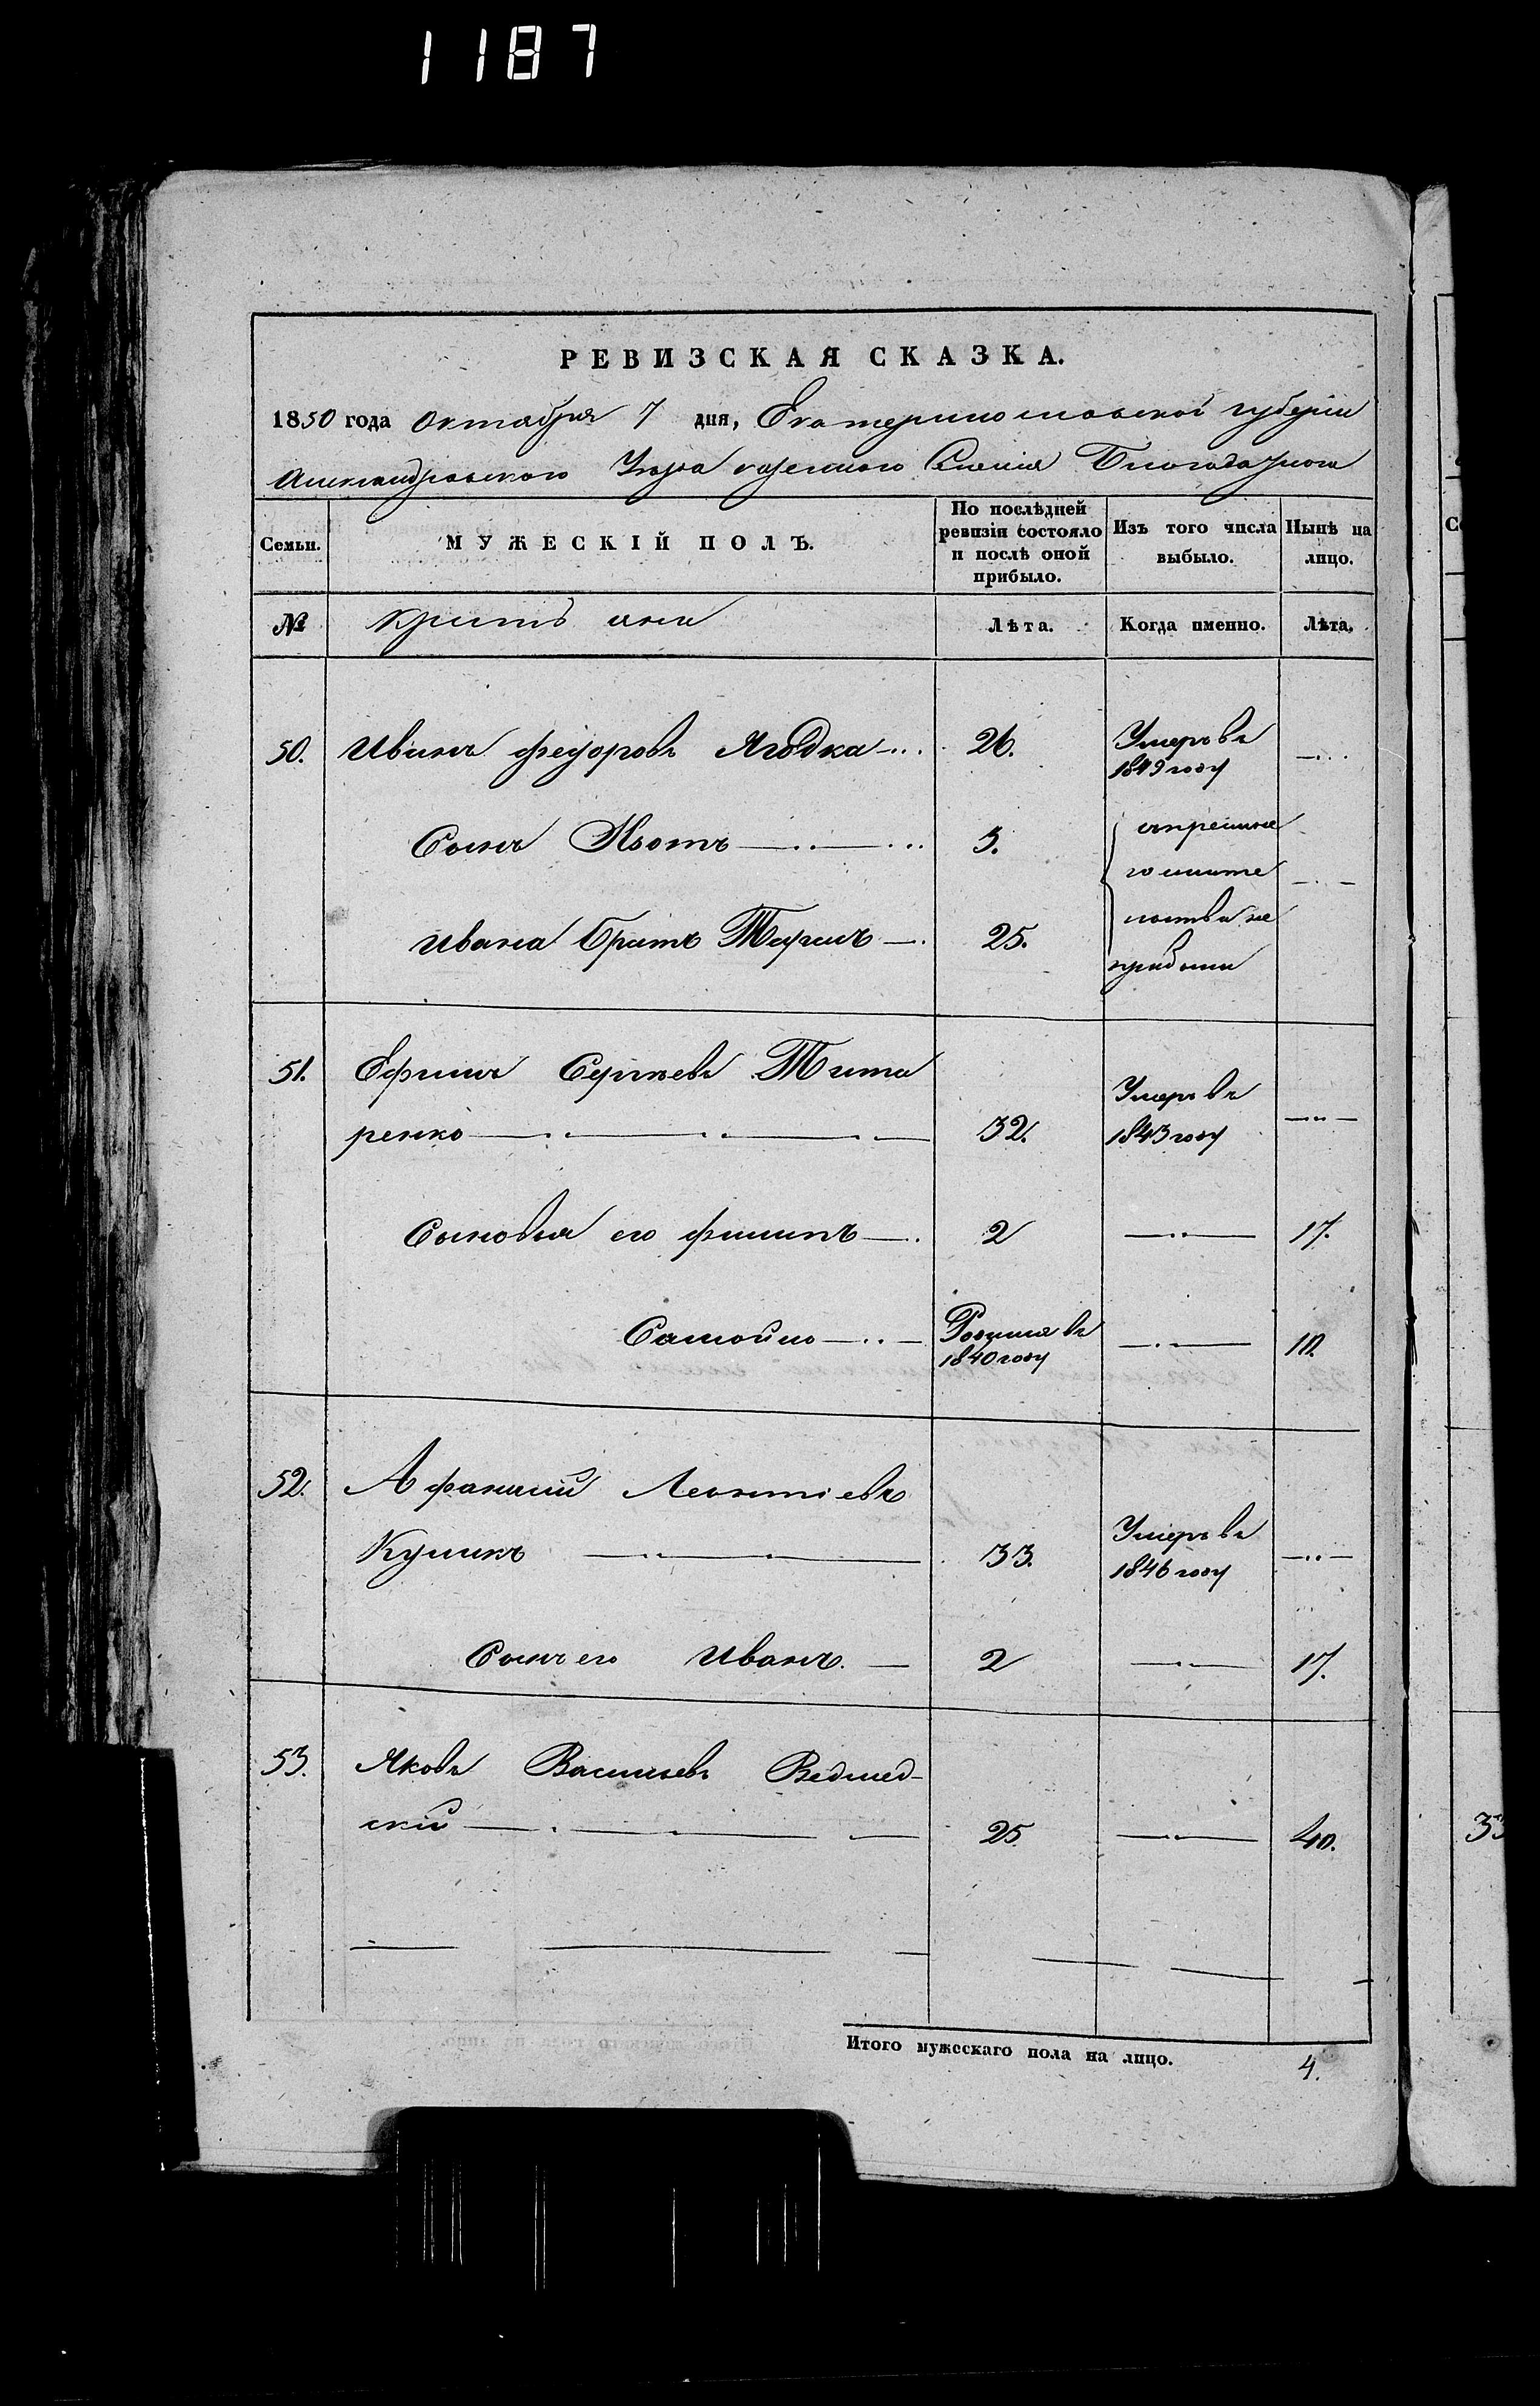 1187
РЕВИЗСКАЯ СКАЗКА.
1850 года Октября 7 дня, Екатеринославской губернии
Александровского Уезда казенного Селения Благодатного
Семьи. МУЖЕСКІЙ ПОЛЪ. По послѣдней ревизіи состояло и послѣ оной прибыло. Изъ того числа выбыло. Нынѣ на лицо.
№ Крестьяне Лѣта. Когда именно. Лѣта.
50. Иванъ Федоровъ Ягодка 26. Умеръ въ 1849 году
Сынъ 3.
Ивана братъ 25. не прибыли
51. Ефимъ Сергеевъ Тита
ренко 32. Умеръ въ 1843 году
Сыновья его Филипъ 2 17.
Самойло Родился въ 1840 году 10.
52. Афанасий Леонтіевъ
Куликъ 33. Умеръ въ 1846 году
Сынъ его Иванъ. 2 17.
53. Яковъ Васильевъ Ведмед-
скій 25. 40.
Итого мужескаго пола на лицо. 4.